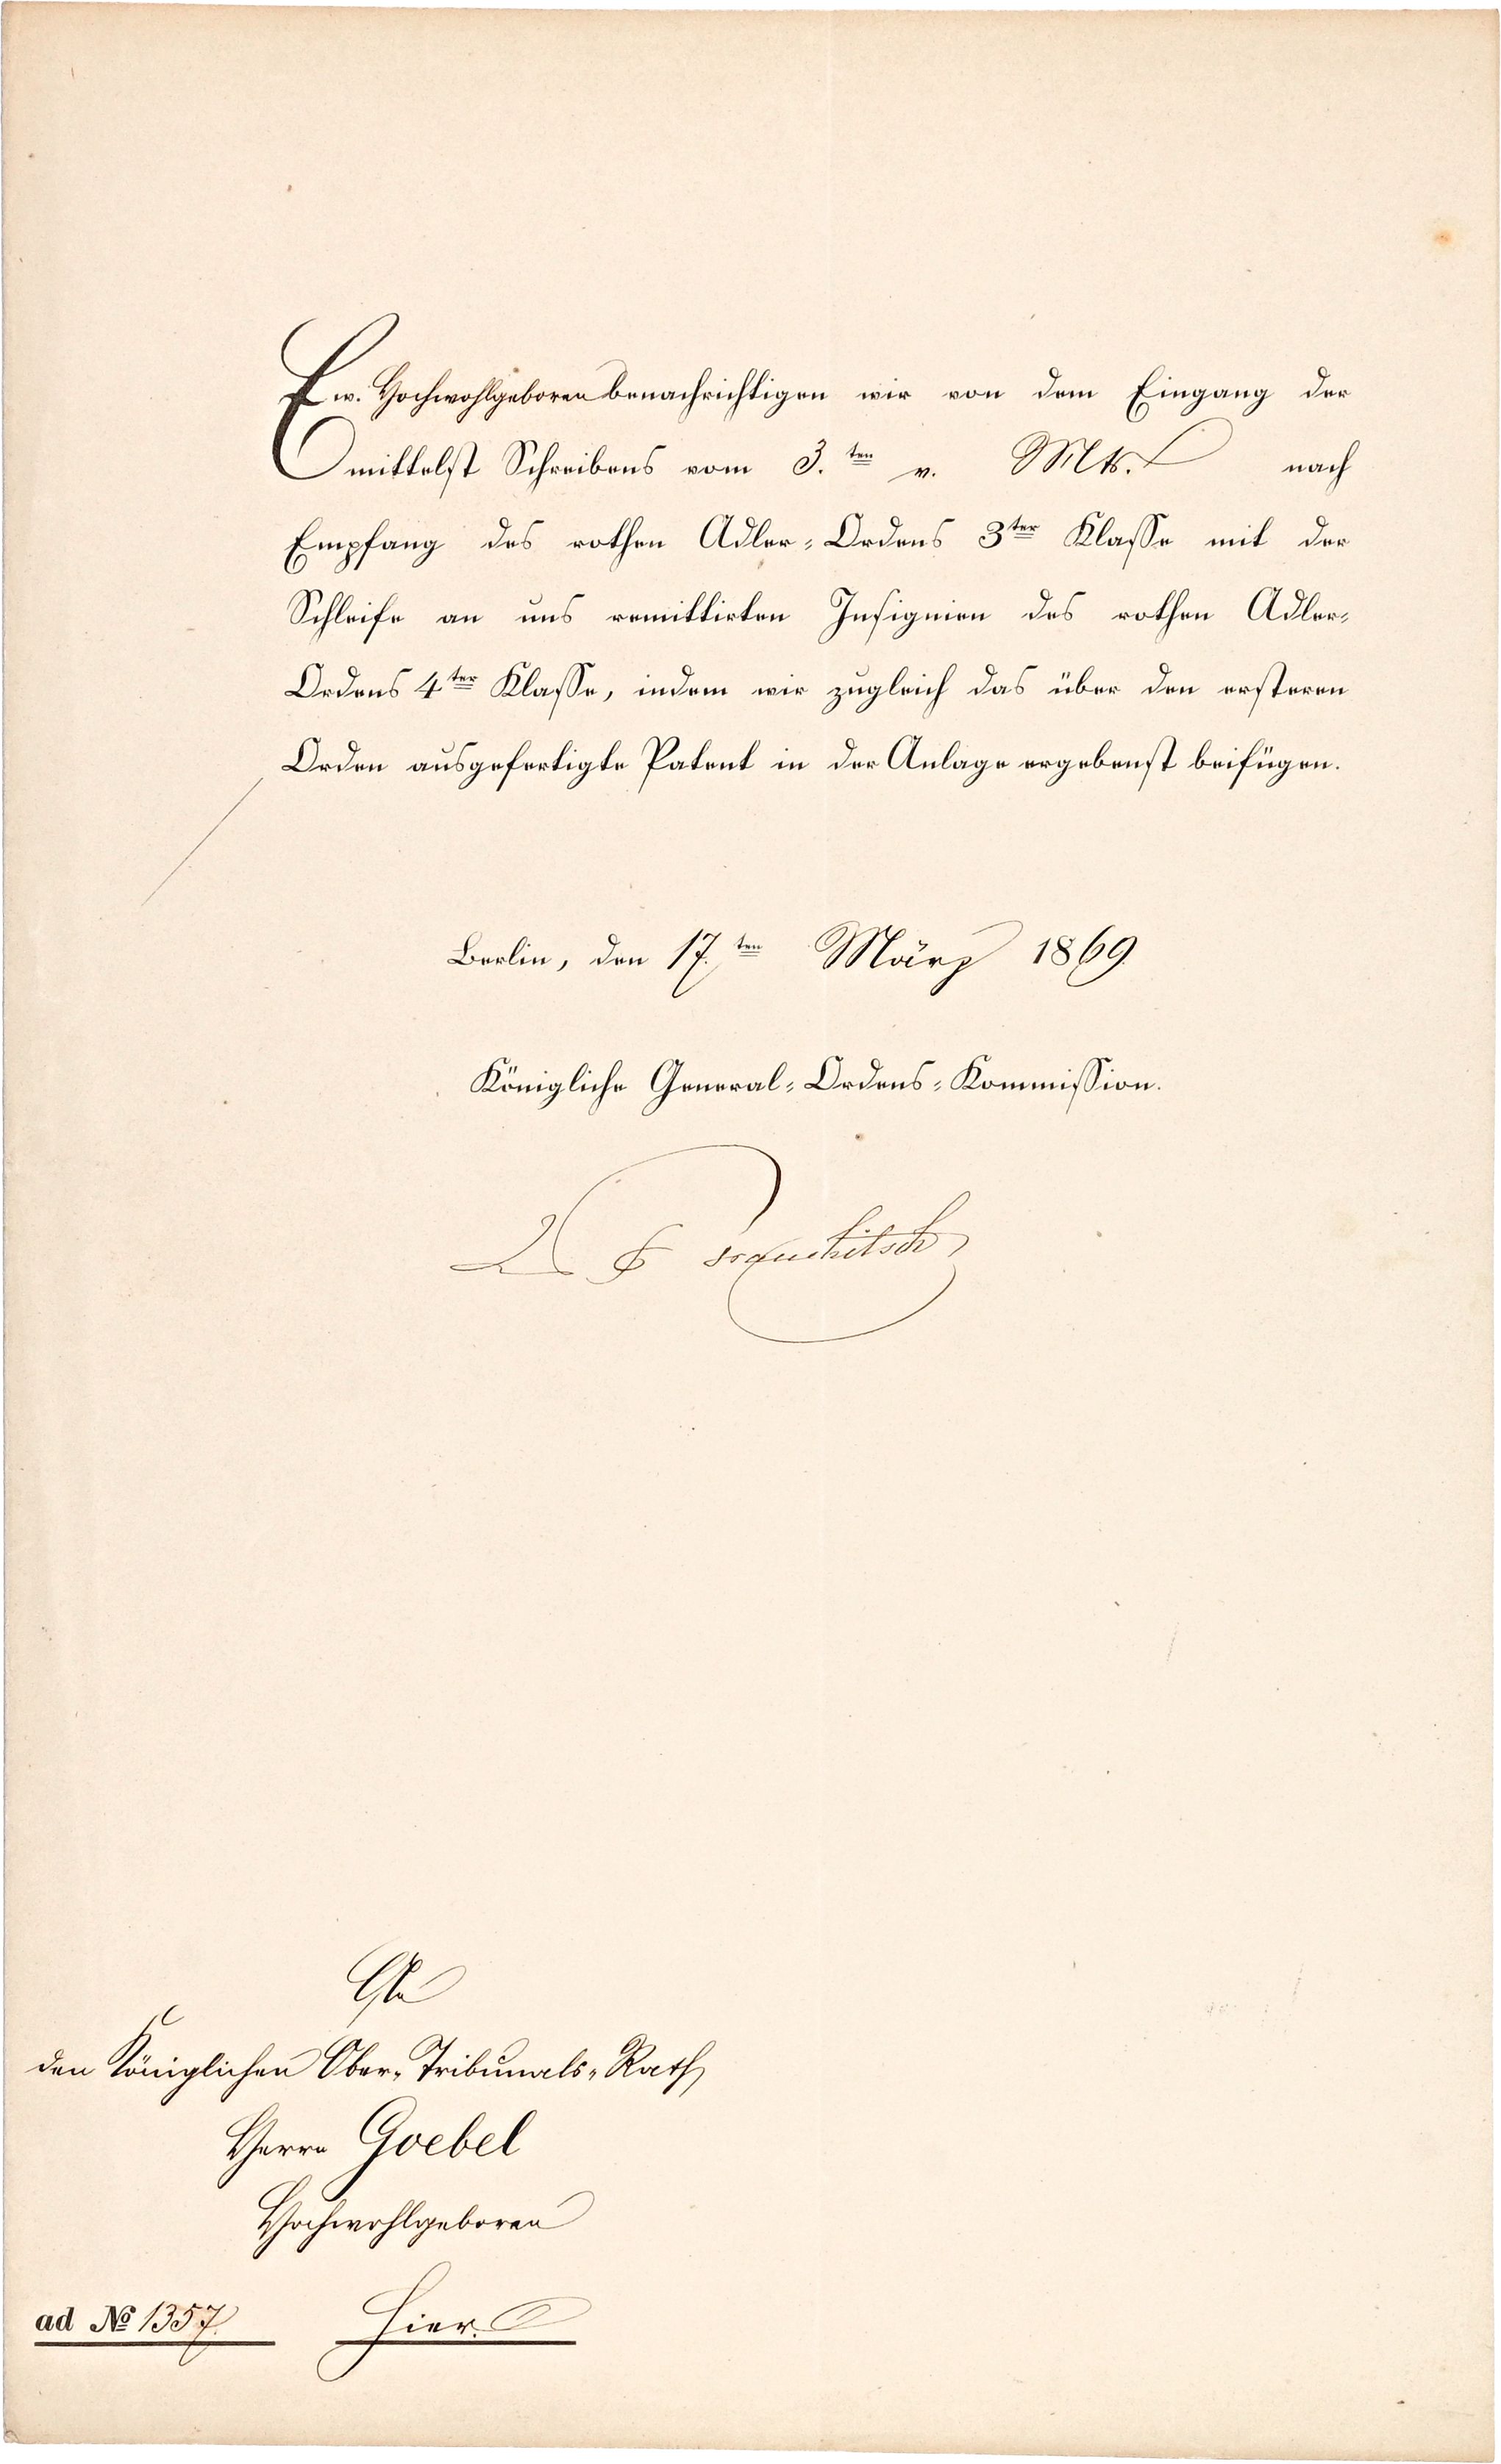 Ew. Hochwohlgeboren benachrichtigen wir von dem Eingang der
mittelst Schreibens vom 3.ten v. Mts. nach
Empfang des rothen Adler-Ordens 3ter Klasse mit der
Schleife an uns remittirten Insignien des rothen Adler-
Ordens 4ter Klasse, indem wir zugleich das über den ersteren
Orden ausgefertigte Patent in der Anlage ergebenst beifügen.
Berlin, den 17.ten März 1869.
Königliche General-Ordens-Kommission.
An
den Königlichen Ober-Tribunals-Rath
Herrn Goebel
Hochwohlgeboren
ad No 1357. Hier.